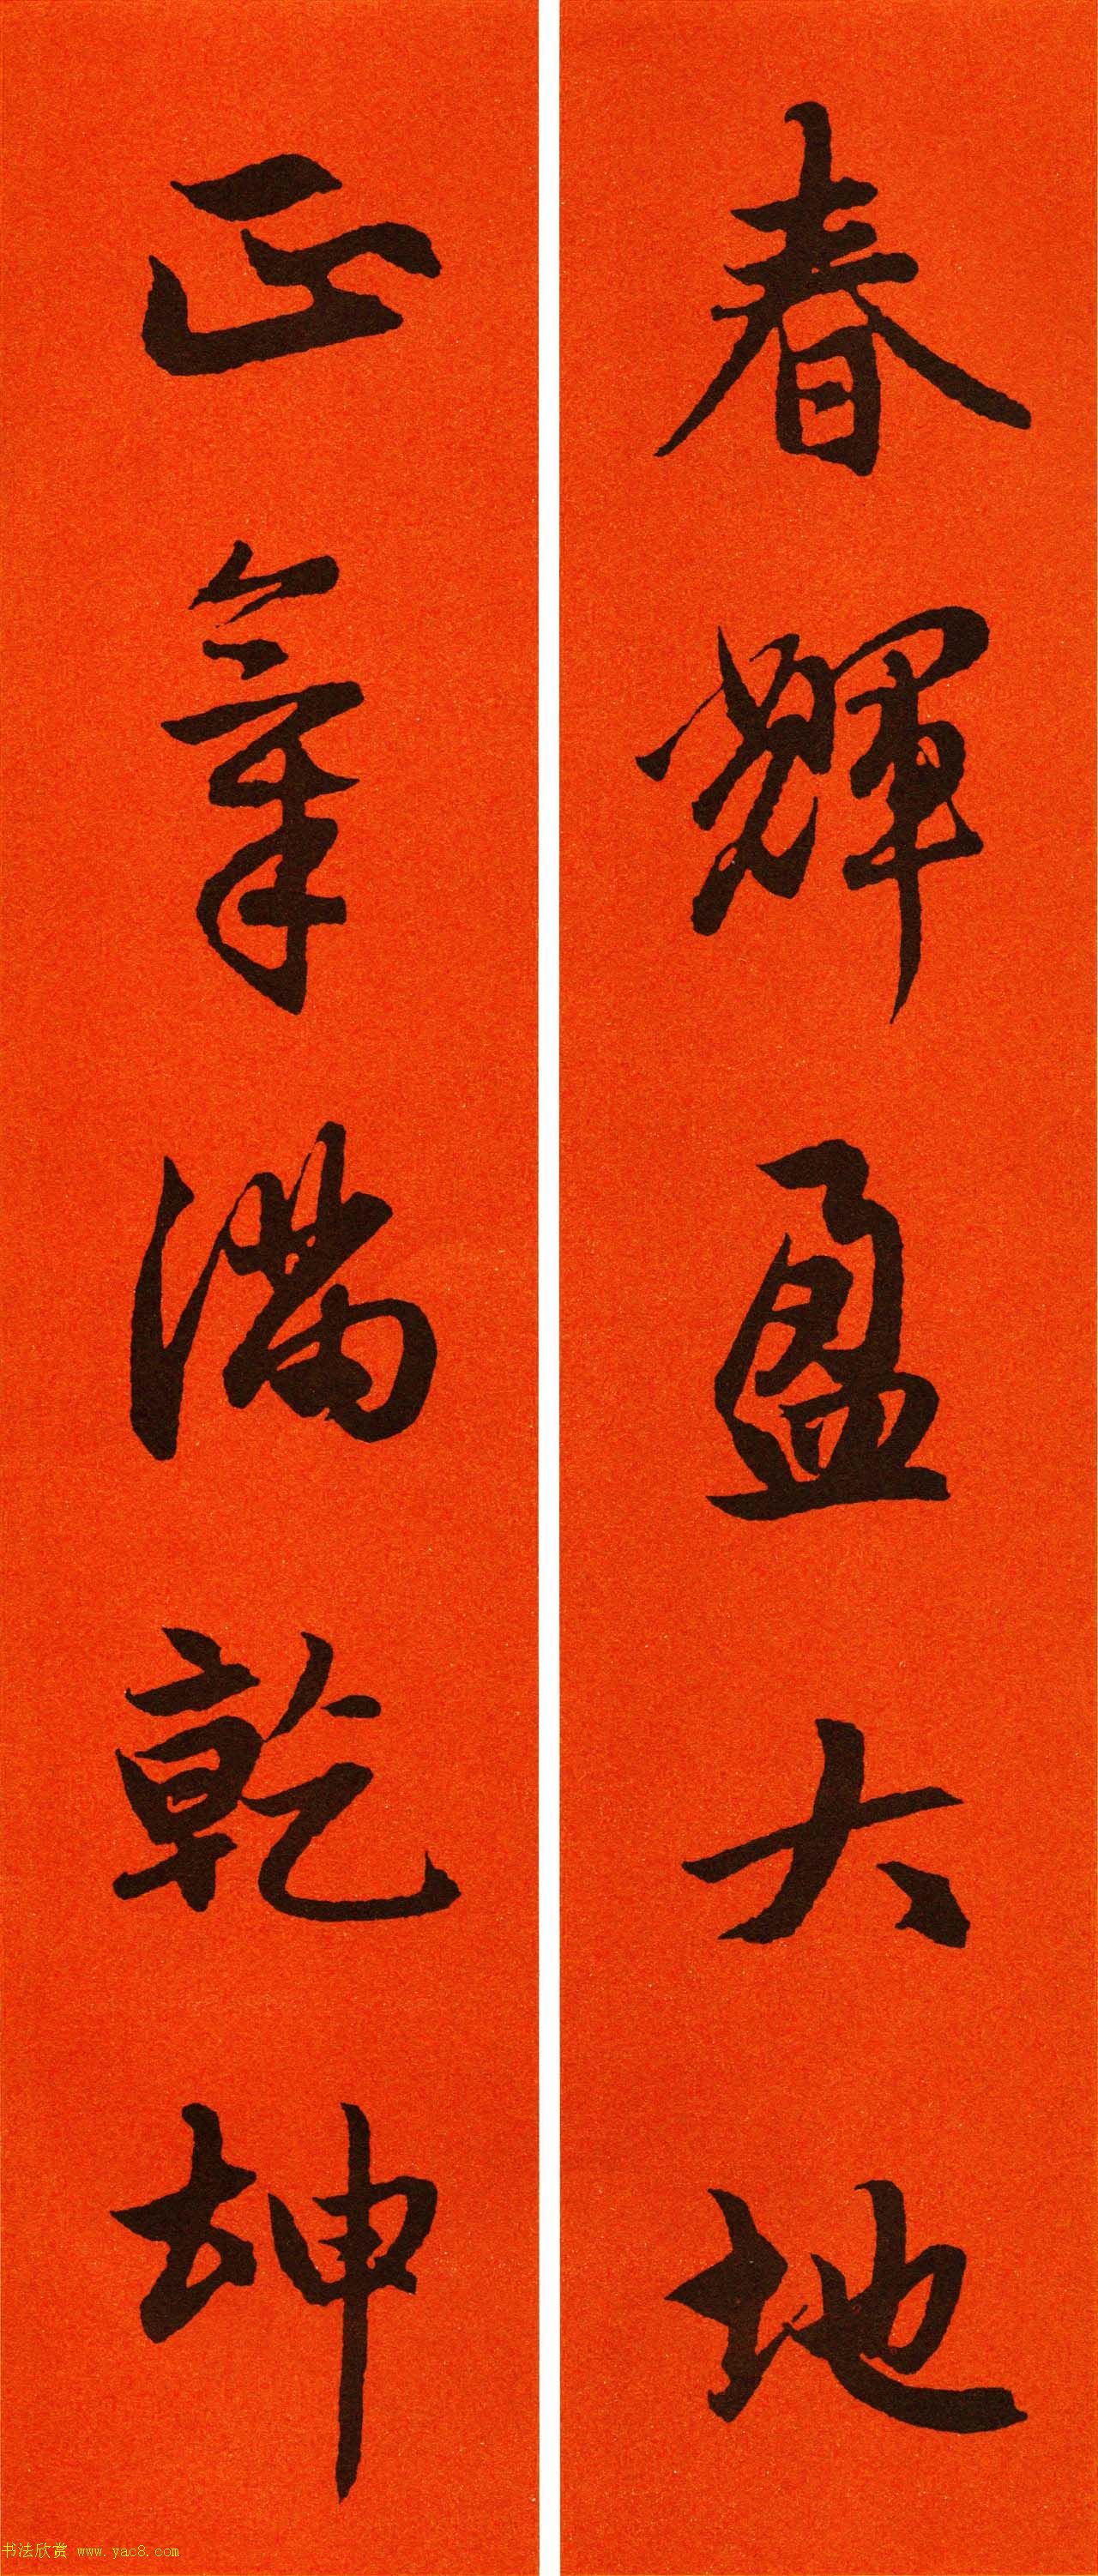 春輝盈大地
正氣滿乾坤
书法欣赏 www.yac8.com